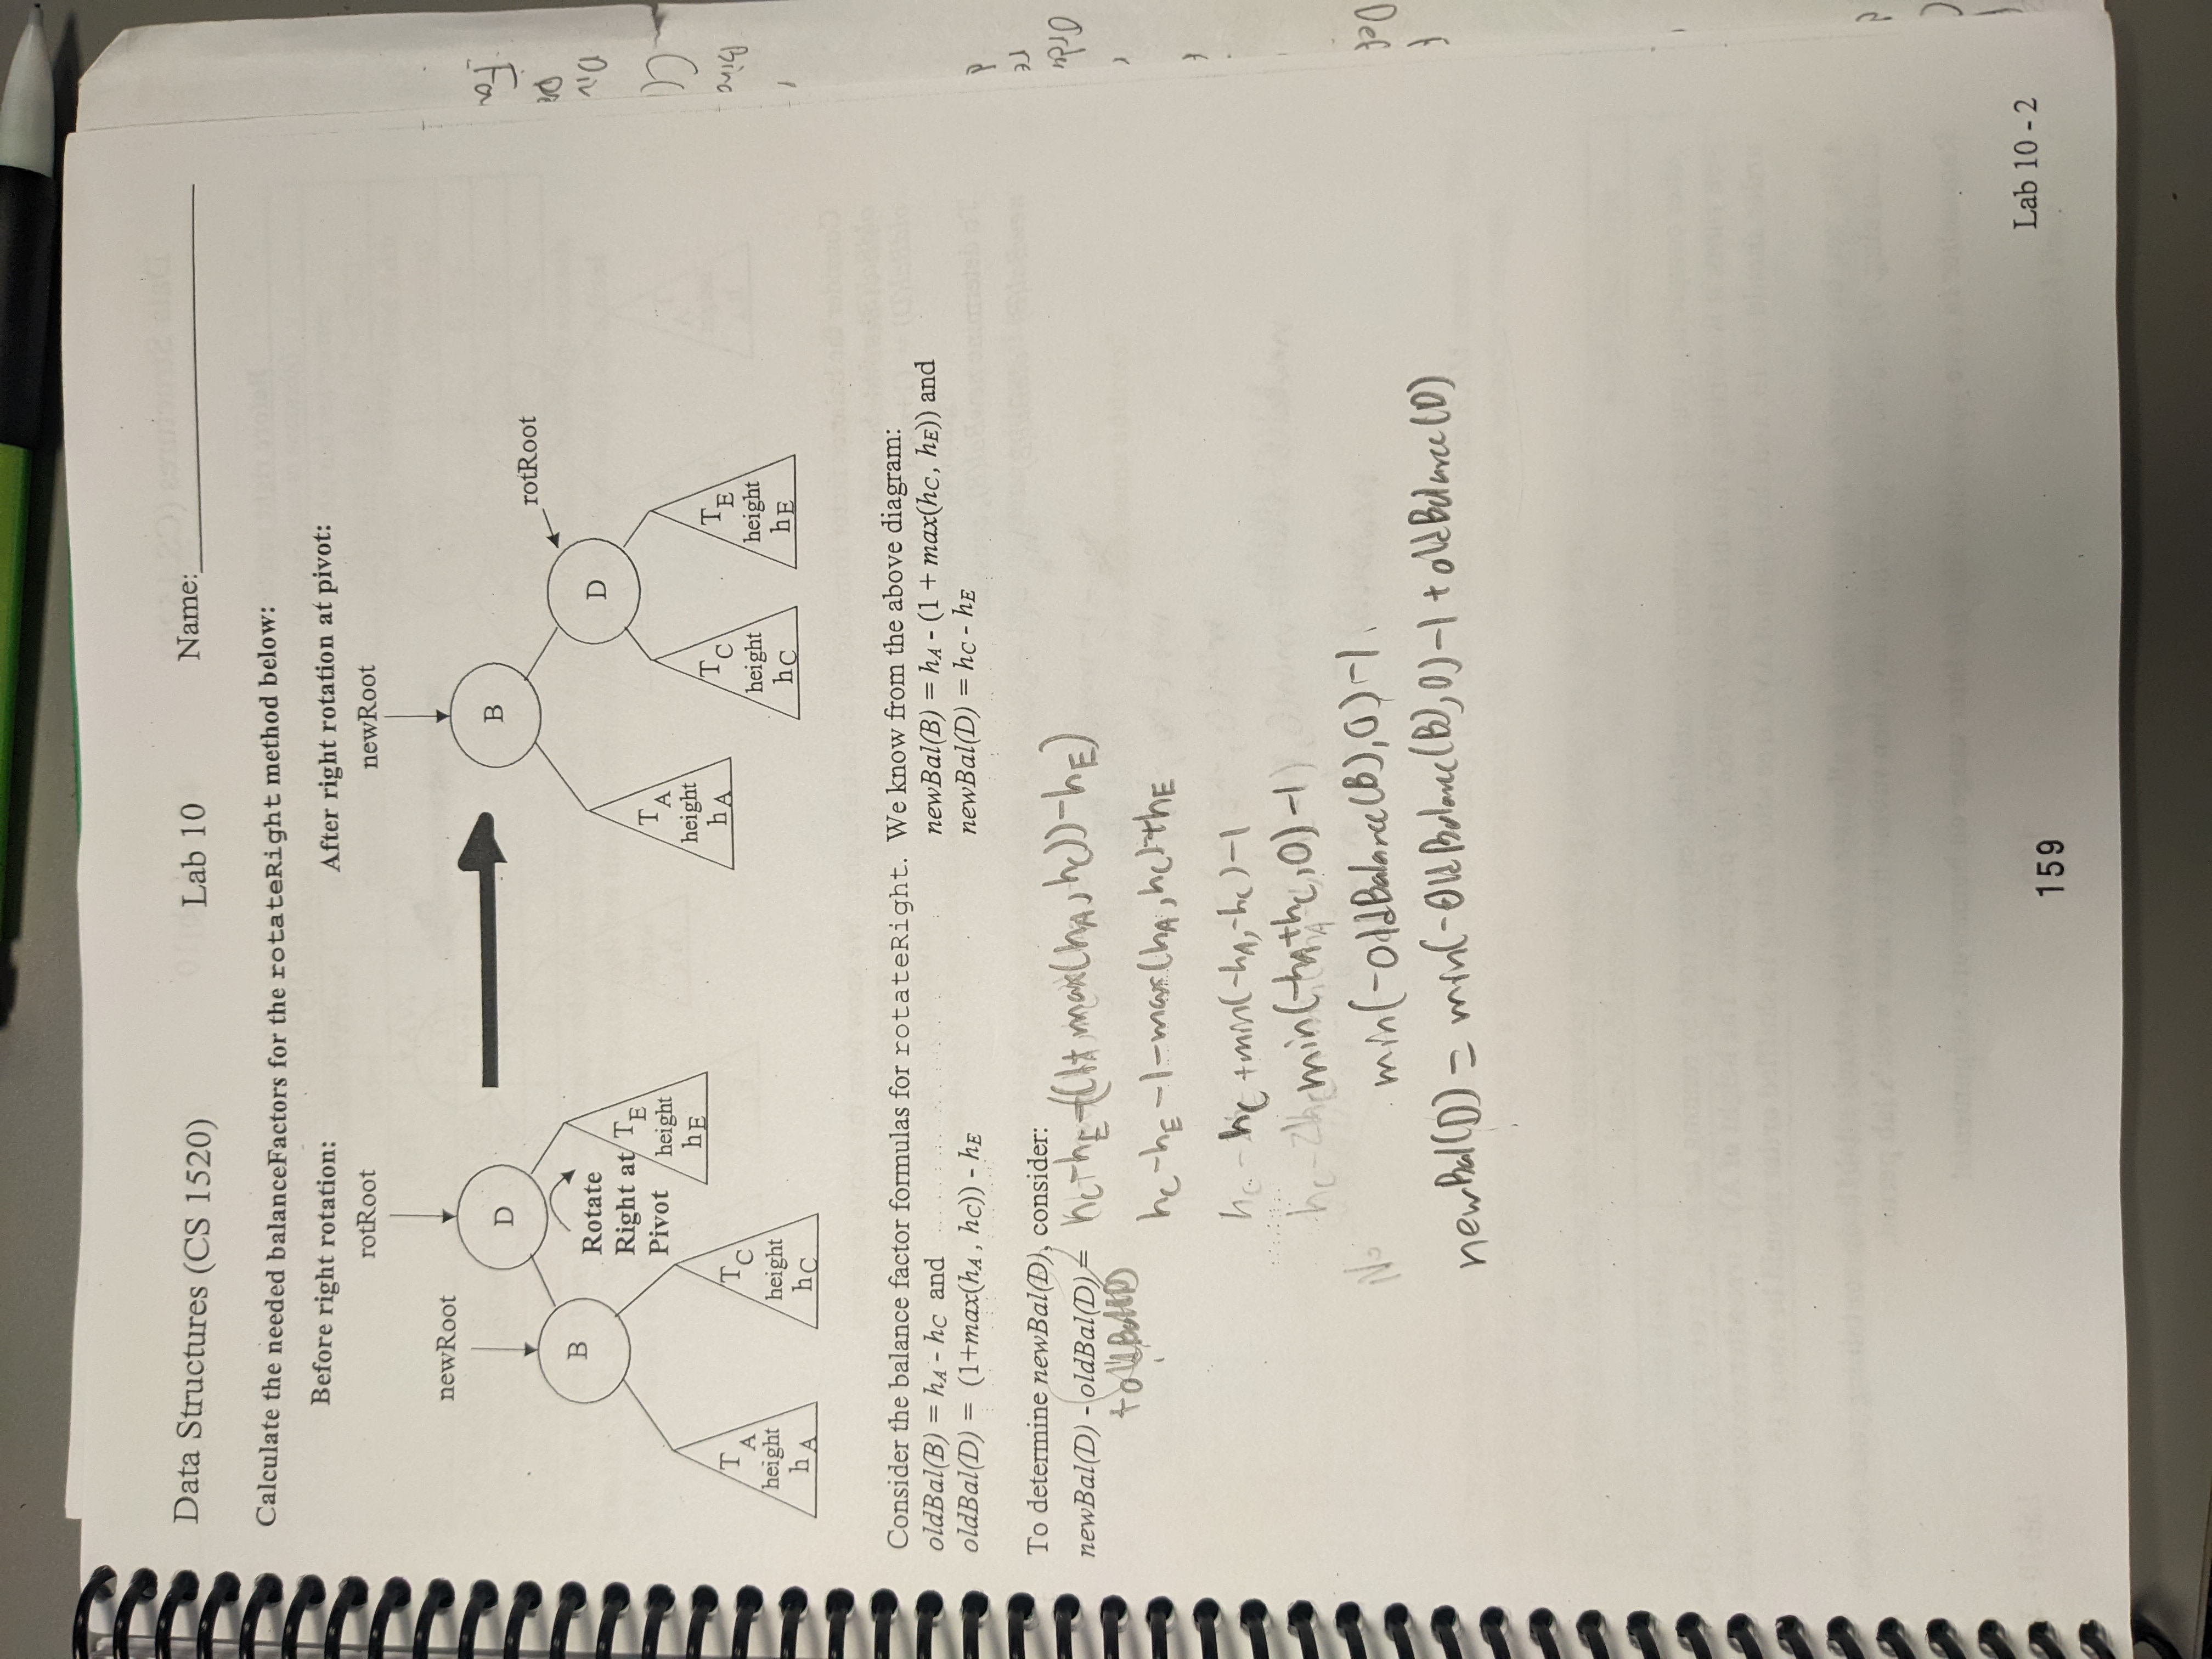 Data Structures (CS 1520) Lab 10 Name:
Calculate the needed balanceFactors for the rotateRight method below:
Before right rotation: After right rotation at pivot:
rotRoot newRoot
newRoot rotRoot
D B
B D
Rotate
Right at
Pivot
T A
height
h A
T C
height
h C
T E
height
h E
T A
height
h A
T C
height
h C
T E
height
h E
Consider the balance factor formulas for rotateRight. We know from the above diagram:
oldBal(B) = hA - hC and newBal(B) = hA - (1 + max(hC, hE)) and
oldBal(D) = (1+max(hA, hC)) - hE newBal(D) = hC - hE
To determine newBal(D), consider:
newBal(D) - oldBal(D) = hC-hE-((1+max(hA,hC))-hE)
+oldBal(D)
hC-hE-1-max(hA,hC)+hE
hC-hC+min(-hA,-hC)-1
min(-hA+hC,0)-1
min(-oldBalance(B),0)-1
newBal(D) = min(-oldBalance(B),0)-1+oldBalance(D)
159
Lab 10 - 2
For
Div
Order